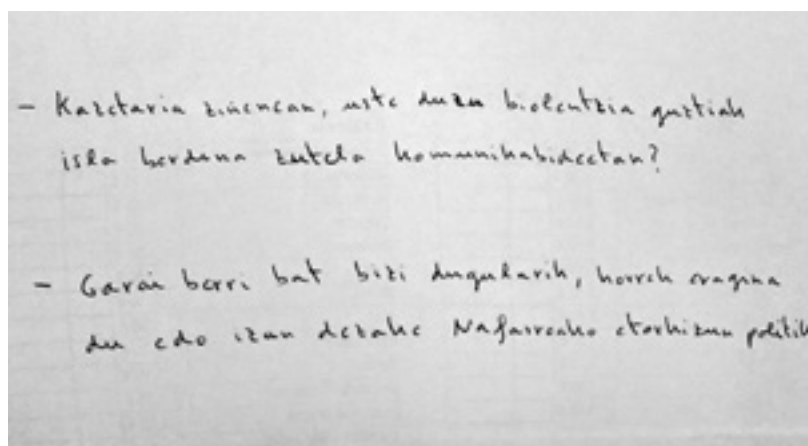 - Kazetaria zinenean, uste duzu biolentzia guztiak
isla berdina zutela komunikabideetan?
- Garai berri bat bizi dugularik, horrek eragina
du edo izan dezake Nafarroako etorkizun politik